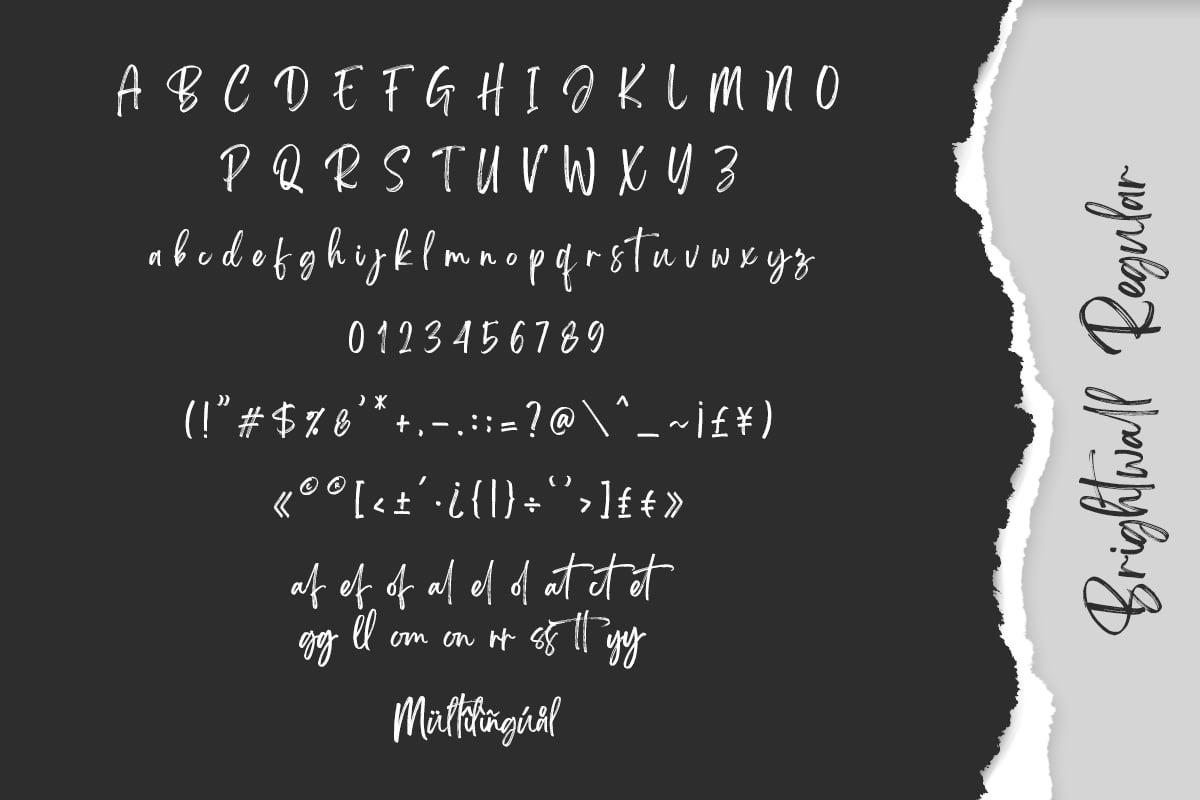 A B C D E F G H I J K L M N O
P Q R S T U V W X Y Z
a b c d e f g h i j k l m n o p q r s t u v w x y z
0 1 2 3 4 5 6 7 8 9
( ! ” # $ % & ’ * + , - . : ; = ? @ \ ^ _ ~ ¡ £ ¥ )
« © ® [ < ± ´ · ¿ { | } ÷ ‘ ’ > ] £ € »
af ef of al el ol at ct et
gg ll om on rr ss tt yy
Mültîlïñgúål
Brightwall Regular